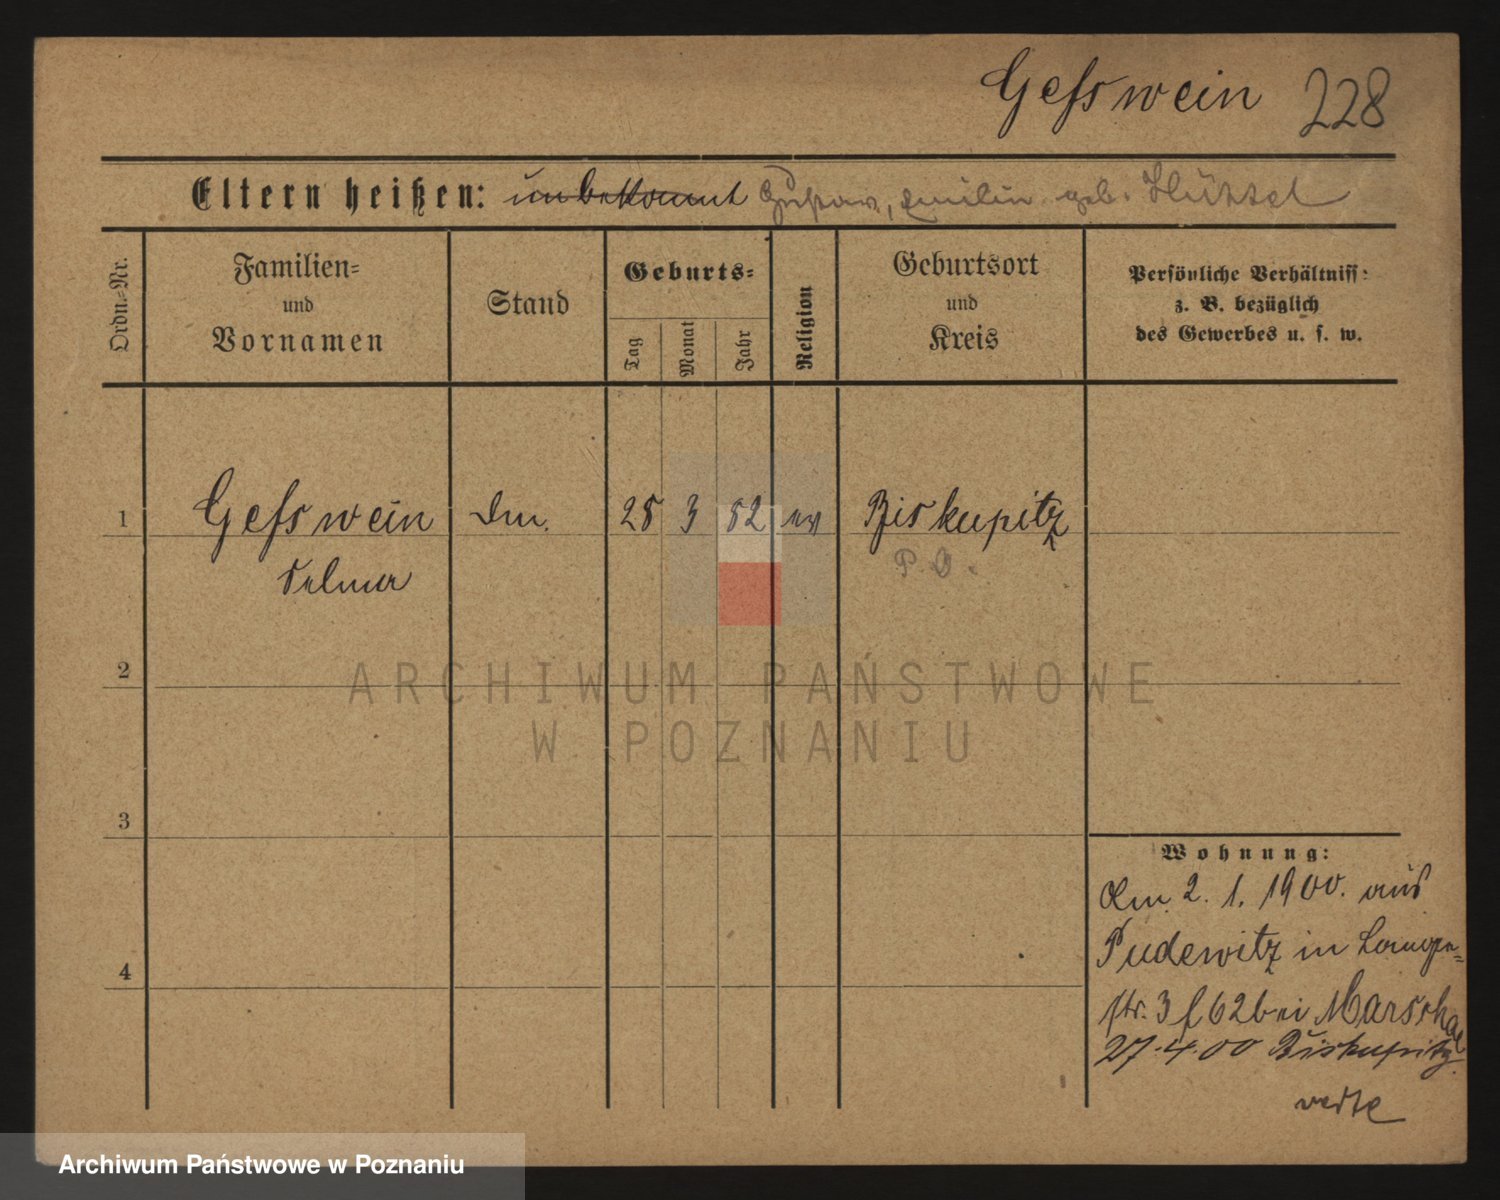 Geſswein 228
Eltern heißen: unbekannt Gustav, Emilie geb. Hützel
Ordn.-Nr.
Familien-
und
Vornamen
Stand
Geburts-
Tag
Monat
Jahr
Religion
Geburtsort
und
Kreis
Persönliche Verhältniss:
z. B. bezüglich
des Gewerbes u. s. w.
1 Geſswein 25 3 82 ev Biskupitz
Selma
P. O.
2
ARCHIWUM PAŃSTWOWE
W POZNANIU
3
Wohnung:
Am 2. 1. 1900. aus
Pudewitz in
str. 3 bei Marschal
4
27.4.00 Biskupitz
Archiwum Państwowe w Poznaniu